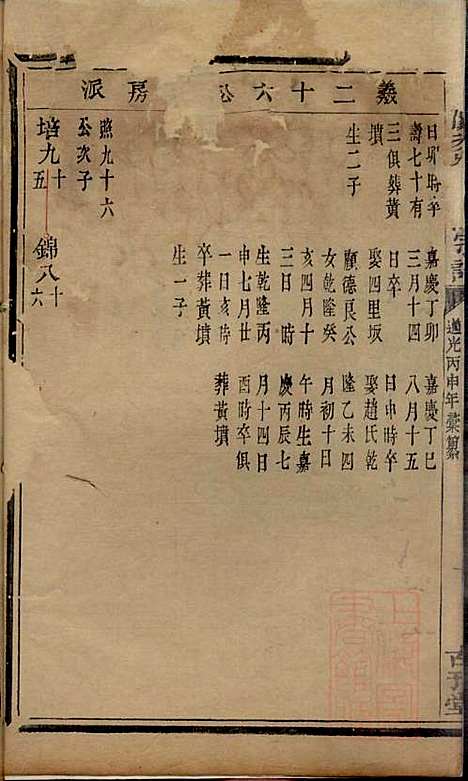 義二十六公房派
日卯時卒
壽七十有
三俱葬黃
墳
生二子
嘉慶丁卯
三月十四
日卒
娶四里坂
顧德良公
女乾隆癸
亥四月十
三日 時
生乾隆丙
申七月廿
一日亥時
卒葬黃墳
生一子
嘉慶丁巳
八月十五
日申時卒
娶趙氏乾
隆乙未四
月初十日
午時生嘉
慶丙辰七
月十四日
酉時卒俱
葬黃墳
照九十六
公次子
培九十五
錦八十六
道光丙申年彙纂